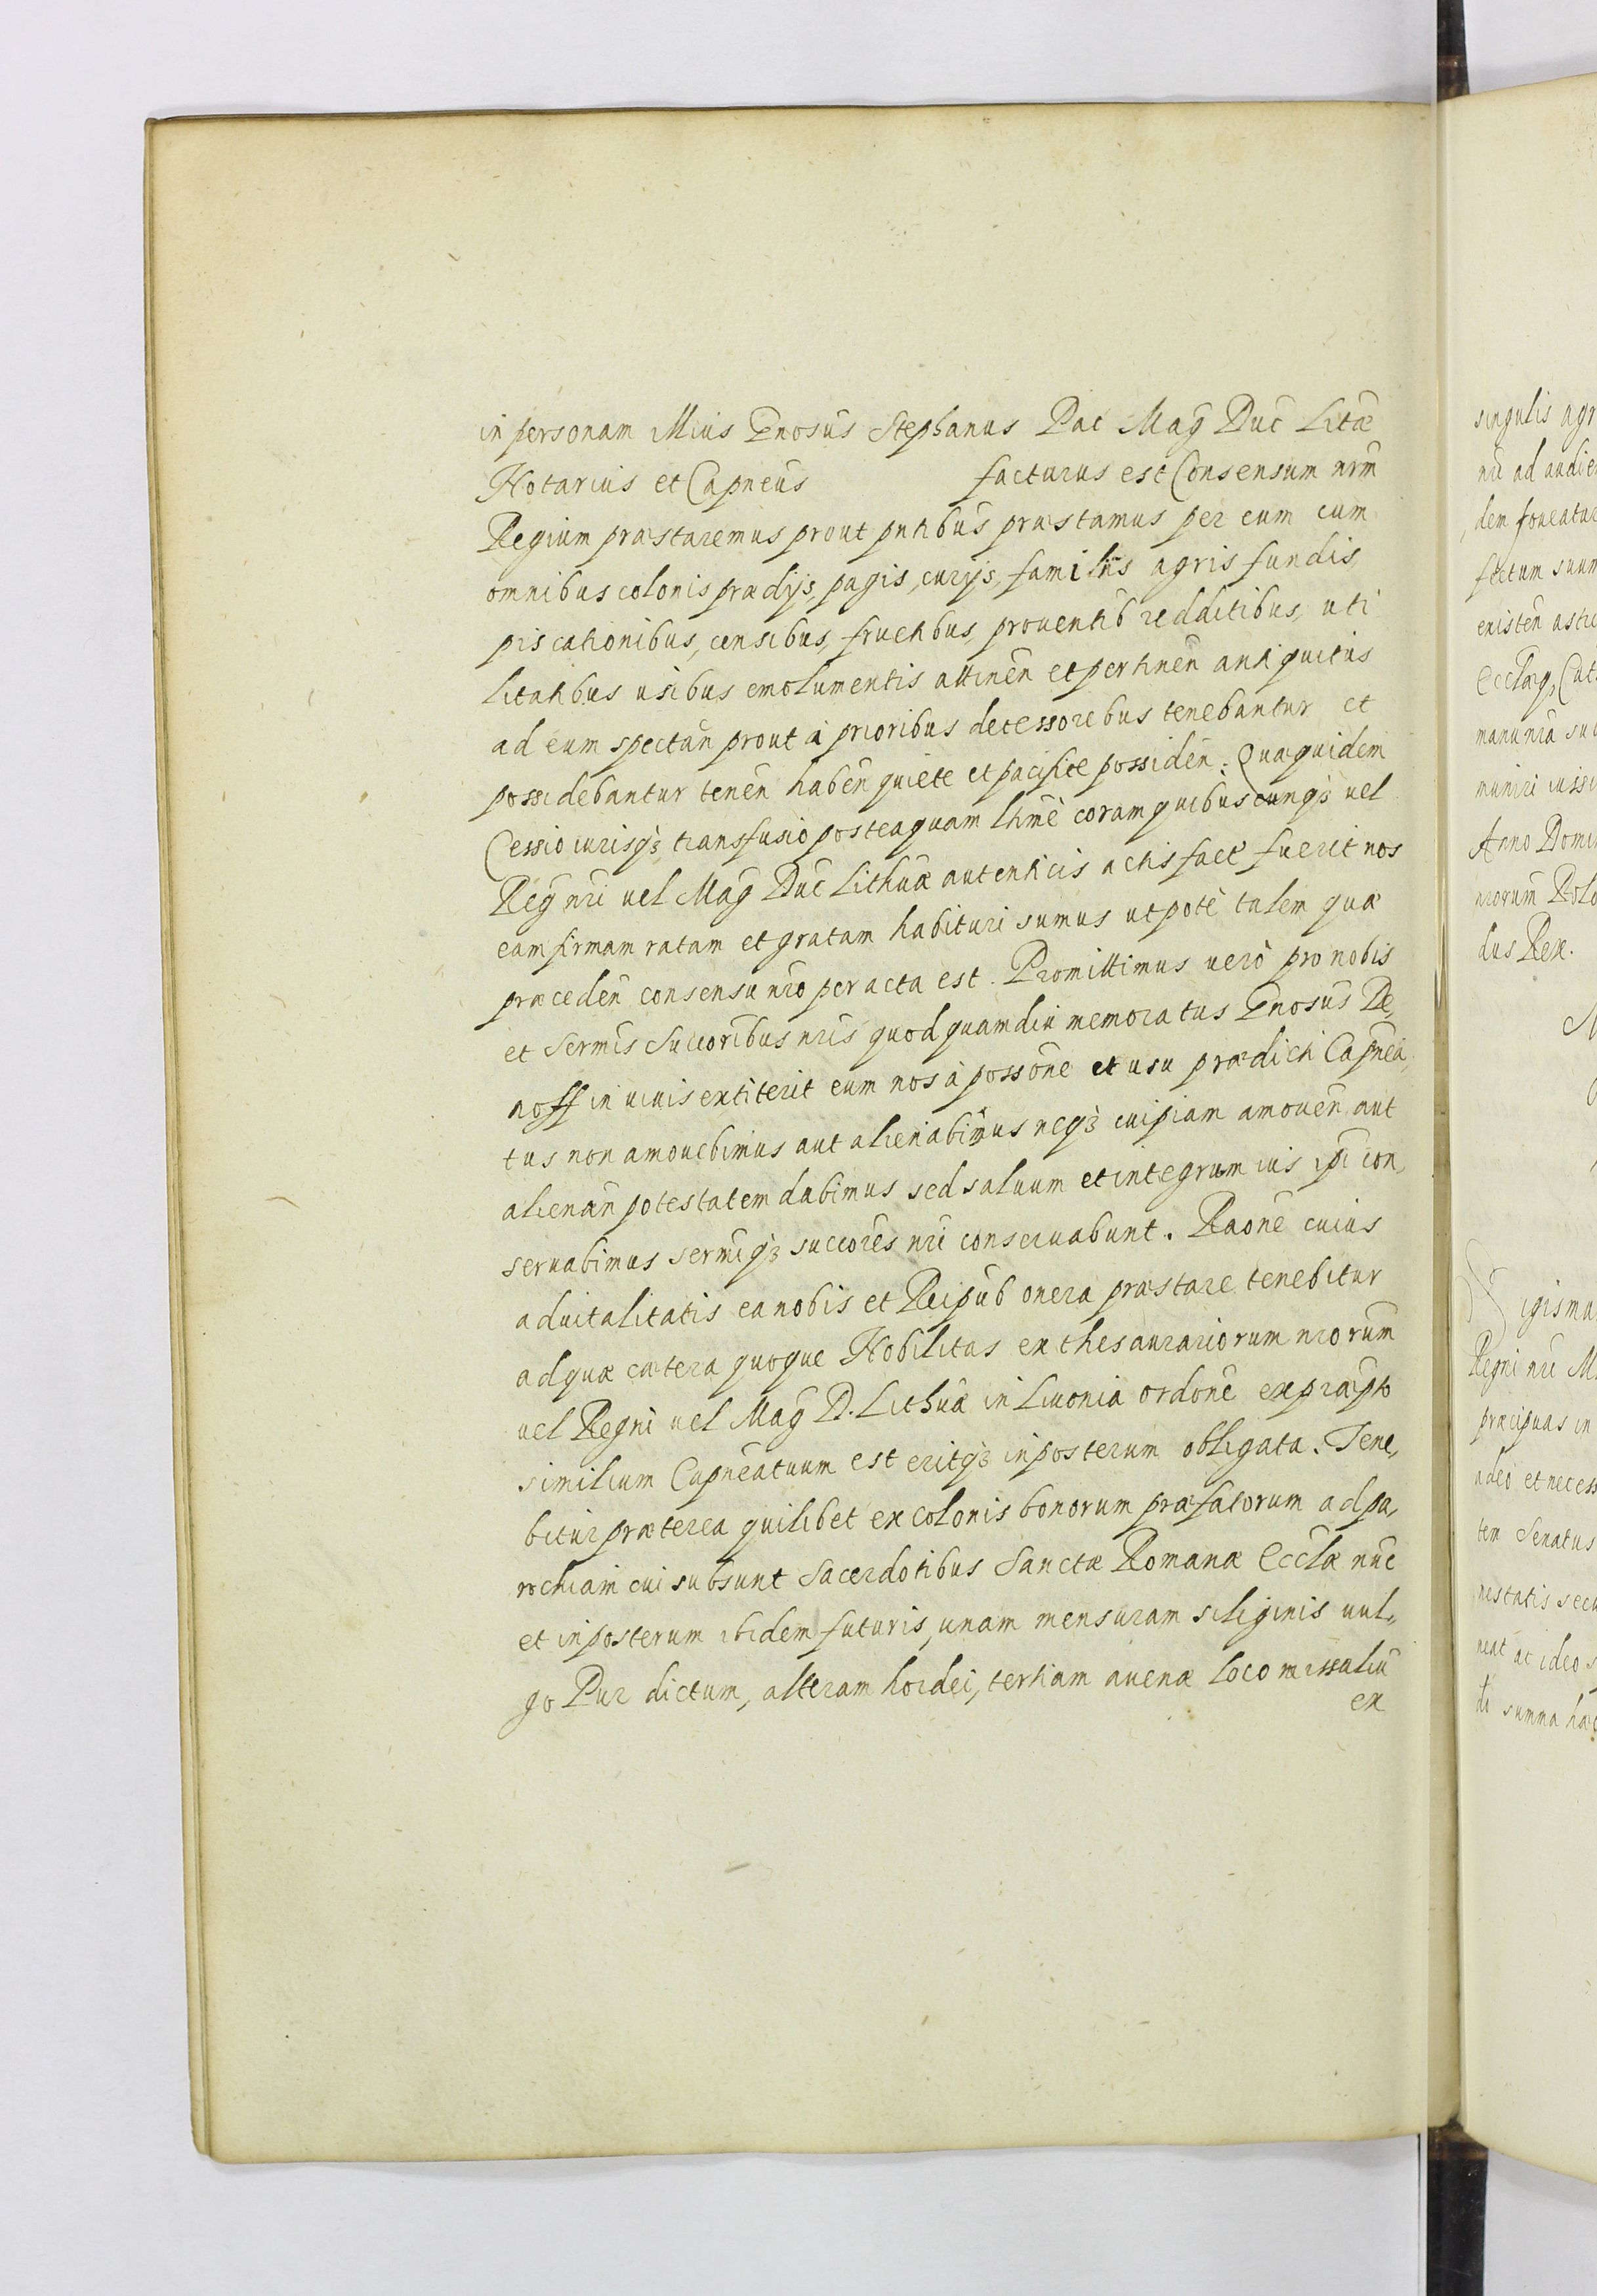 in personam illius Gnosus Stephanus Pac Mag Duc Litæ
Notarius et Capneus facturus est Consensum nrm
Regium præstaremus prout pntibus præstamus per eum cum
omnibus colonis prædijs, pagis, curijs, familiis agris fundis,
piscationibus, censibus, fructibus, prouentib redditibus, uti
litatibus usibus emolumentis attinen et pertinen antiquitus
ad eum spectan prout à prioribus decessoribus tenebantur et
possidebantur tenen haben quiete et pacifice possiden. Quæ quidem
Cessio iurisq3 transfusio posteaquam lrime coram quibuscunq3 uel
Reg nri uel Mag Duc Lithuæ autenticis actis fact fuerit nos
eam firmam ratam et gratam habituri sumus utpote talem quæ
præceden consensu nro peracta est. Promittimus uero pro nobis
et Sermis Succoribus nris quod quamdiu memoratus Gnosus De,
noff in uiuis extiterit eum nos à possone et usu prædicti Capnea,
tus non amouebimus aut alienabimus neq3 cuipiam amouen aut
alienan potestatem dabimus sed saluum et integrum ius ipi con,
seruabimus sermiq3 succores nri conseruabunt. Raone cuius
aduitalitatis ea nobis et Reipub onera præstare tenebitur
ad quæ cætera quoque Nobilitas ex thesaurariorum nrorum
uel Regni uel Mag D. Lithuæ in Liuonia ordone ex præpto
similium Capneatuum est eritq3 in posterum obligata. Tene,
bitur præterea quilibet ex colonis bonorum præfatorum ad pa,
rochiam cui subsunt Sacerdotibus Sanctæ Romanæ Ecclæ nuc
et in posterum ibidem futuris, unam mensuram siliginis uul,
go Pur dictum, alteram hordei, tertiam auenæ loco missaliu
ex
singulis agr
nri ad audie
dem foueatur
fectum suum
existen
Ecclæq, Cat
manu nra su
muniri iussi
Anno Domi
nrorum Polo
dus Rex.
Sigisma
Regni nri M
præcipuas in
adeo et necess
tem Senatus
nestatis secu
neat ac ideo s
summa hac